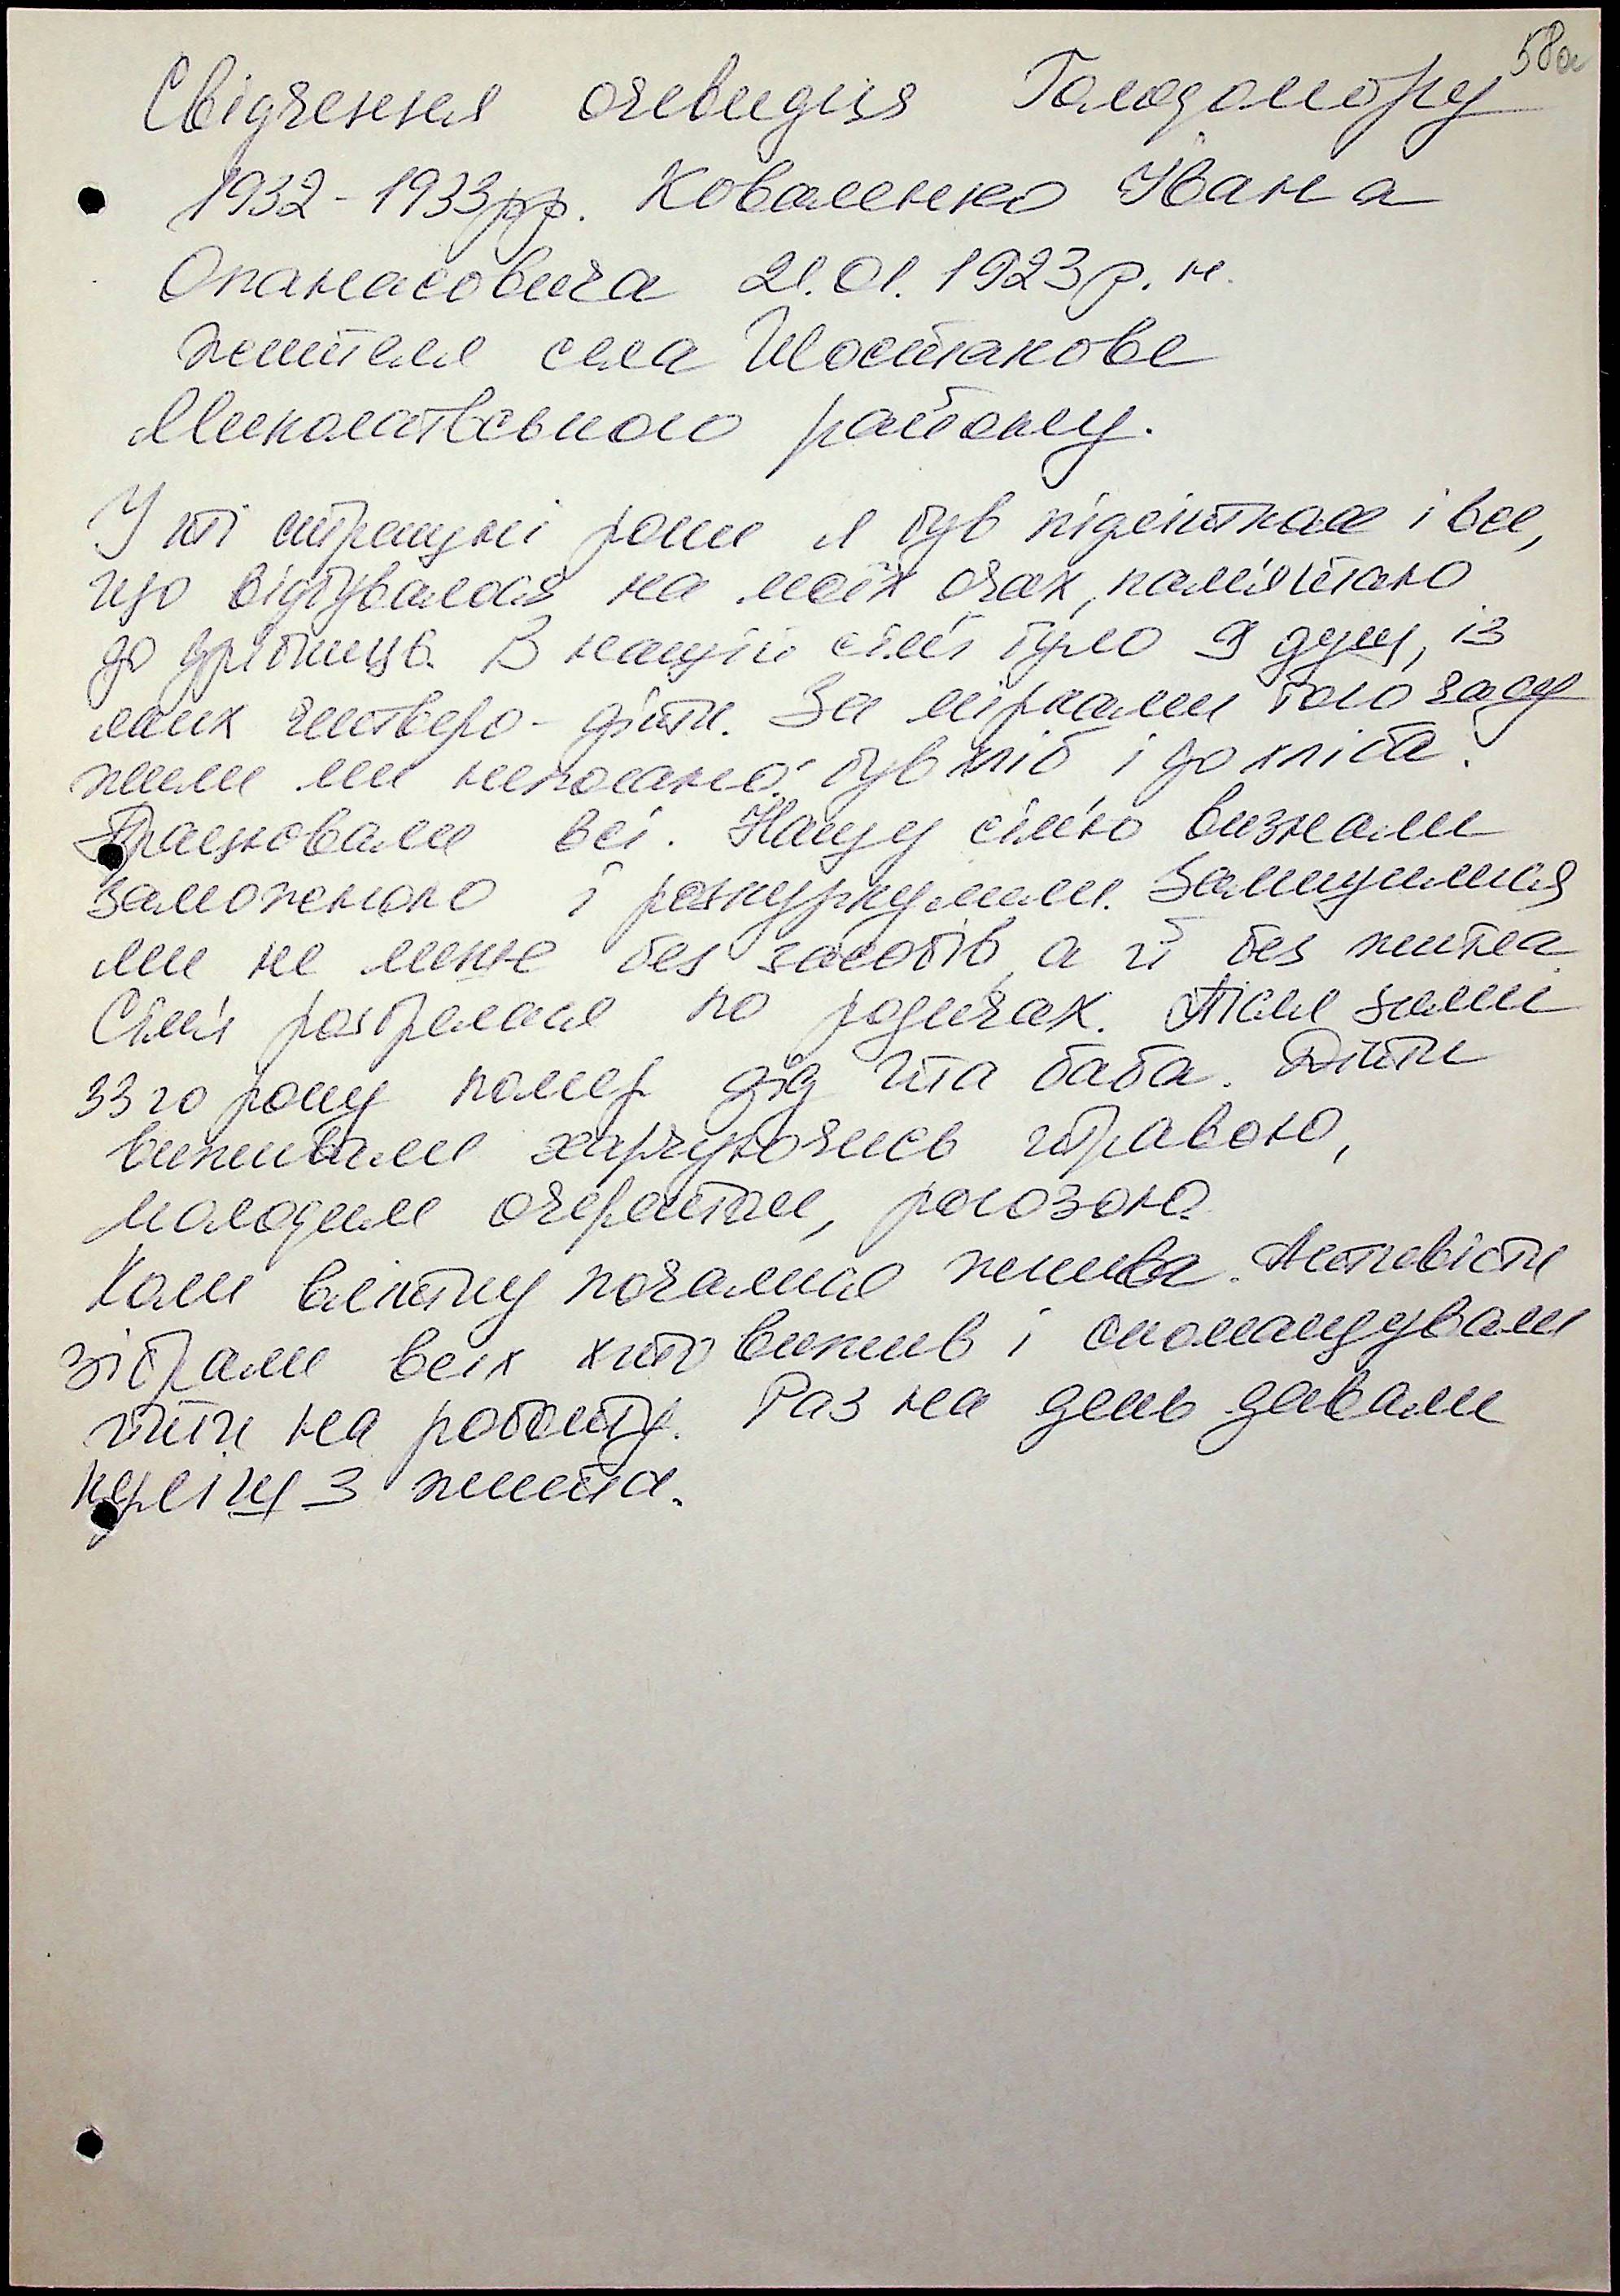 58а
Свідчення очевидця Голодомору
1932-1933рр. Коваленко Івана
Опанасовича 21.01.1923р.н.
жителя села Шостакове
Миколаївського району.
У ті страшні роки я був підлітком і все,
що відбувалося на моїх очах, пам'ятаю
до дрібниць. В нашій сім'ї було 9 душ, із
яких четверо - діти. За мірками того часу
жили ми непогано: був хліб і до хліба.
Працювали всі. Нашу сім'ю визнали
заможною і розкуркулили. Залишилися
ми не лише без засобів, а й без житла
Сім'я розбрелася по родичах. Після зими
33го року помер дід та баба. Діти
виживали харчуючись травою,
молодим очеретом, рогозою.
Коли влітку почалися жнива. Активісти
зібрали всіх хто вижив і скомандували
йти на роботу. Раз на день давали
куліш з жита.